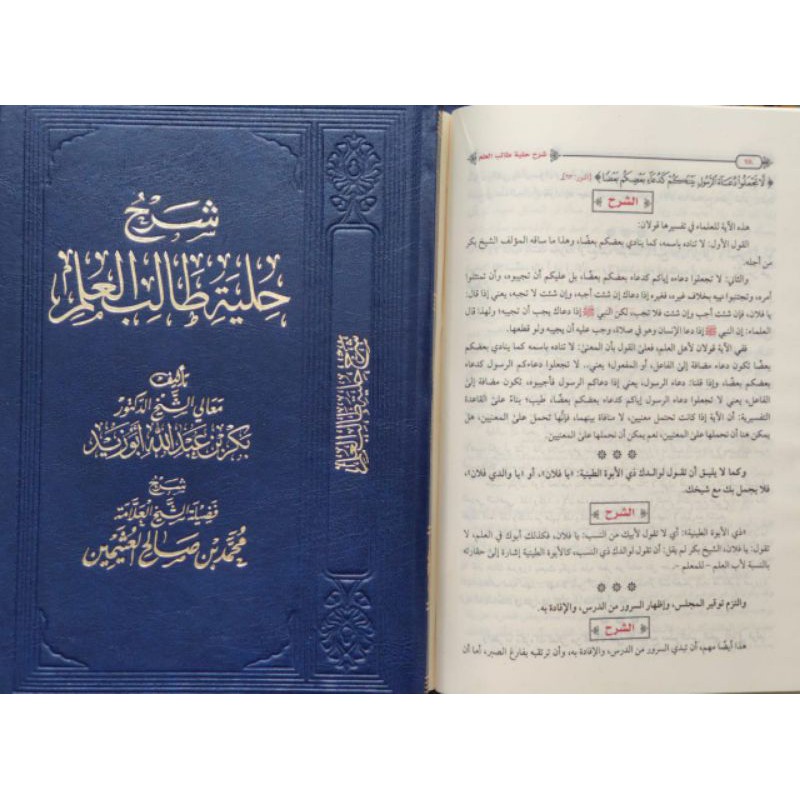 شرح
حلية طالب العلم
تأليف
معالي الشيخ الدكتور
بكر بن عبد الله أبو زيد
شرح
فضيلة الشيخ العلامة
محمد بن صالح العثيمين
شرح حلية طالب العلم
شرح حلية طالب العلم
﴿لَا تَجْعَلُوا دُعَاءَ الرَّسُولِ بَيْنَكُمْ كَدُعَاءِ بَعْضِكُم بَعْضًا﴾ [النور: ٦٣].
الشرح
هذه الآية للعلماء في تفسيرها قولان:
القول الأول: لا تناده باسمه، كما ينادي بعضكم بعضًا، وهذا ما ساقه المؤلف الشيخ بكر
من أجله.
والثاني: لا تجعلوا دعاءه إياكم كدعاء بعضكم بعضًا، بل عليكم أن تجيبوه، وأن تمتثلوا
أمره، وتجتنبوا نهيه بخلاف غيره، فغيره إذا دعاك إن شئت أجب، وإن شئت لا تجبه، يعني إذا قال:
يا فلان، فإن شئت أجب وإن شئت فلا تجب، لكن النبي ﷺ إذا دعاك يجب أن تجيبه؛ ولهذا قال
العلماء: إن النبي ﷺ إذا دعا الإنسان وهو في صلاة، وجب عليه أن يجيبه ولو قطعها.
ففي الآية قولان لأهل العلم، فعلى القول بأن المعنى: لا تناده باسمه كما ينادي بعضكم
بعضًا تكون دعاء مضافة إلى الفاعل، أو المفعول؛ يعني.. لا تجعلوا دعاءكم الرسول كدعاء بعضكم
بعضًا، وإذا قلنا: دعاء الرسول، يعني إذا دعاكم الرسول فأجيبوه، تكون مضافة إلى
الفاعل، يعني لا تجعلوا دعاء الرسول إياكم كدعاء بعضكم بعضًا، طيب؛ بناءً على القاعدة
التفسيرية: أن الآية إذا كانت تحتمل معنيين، لا منافاة بينهما، فإنها تحمل على المعنيين، هل
يمكن هنا أن نحملها على المعنيين، نعم يمكن أن نحملها على المعنيين.
وكما لا يليق أن تقول لوالدك ذي الأبوة الطينية: «يا فلان»، أو «يا والدي فلان»
فلا يجمل بك مع شيخك.
الشرح
«ذي الأبوة الطينية»: أي لا تقول لأبيك من النسب: يا فلان، فكذلك أبوك في العلم، لا
تقول: يا فلان، الشيخ بكر لم يقل: أن تقول لوالدك ذي النسب، كالأبوة الطينية إشارة إلى حقارته
بالنسبة لأب العلم - للمعلم -.
والتزم توقير المجلس، وإظهار السرور من الدرس، والإفادة به.
الشرح
هذا أيضًا مهم، أن تبدي السرور من الدرس، والإفادة به، وأن ترتقبه بفارغ الصبر، أما أن